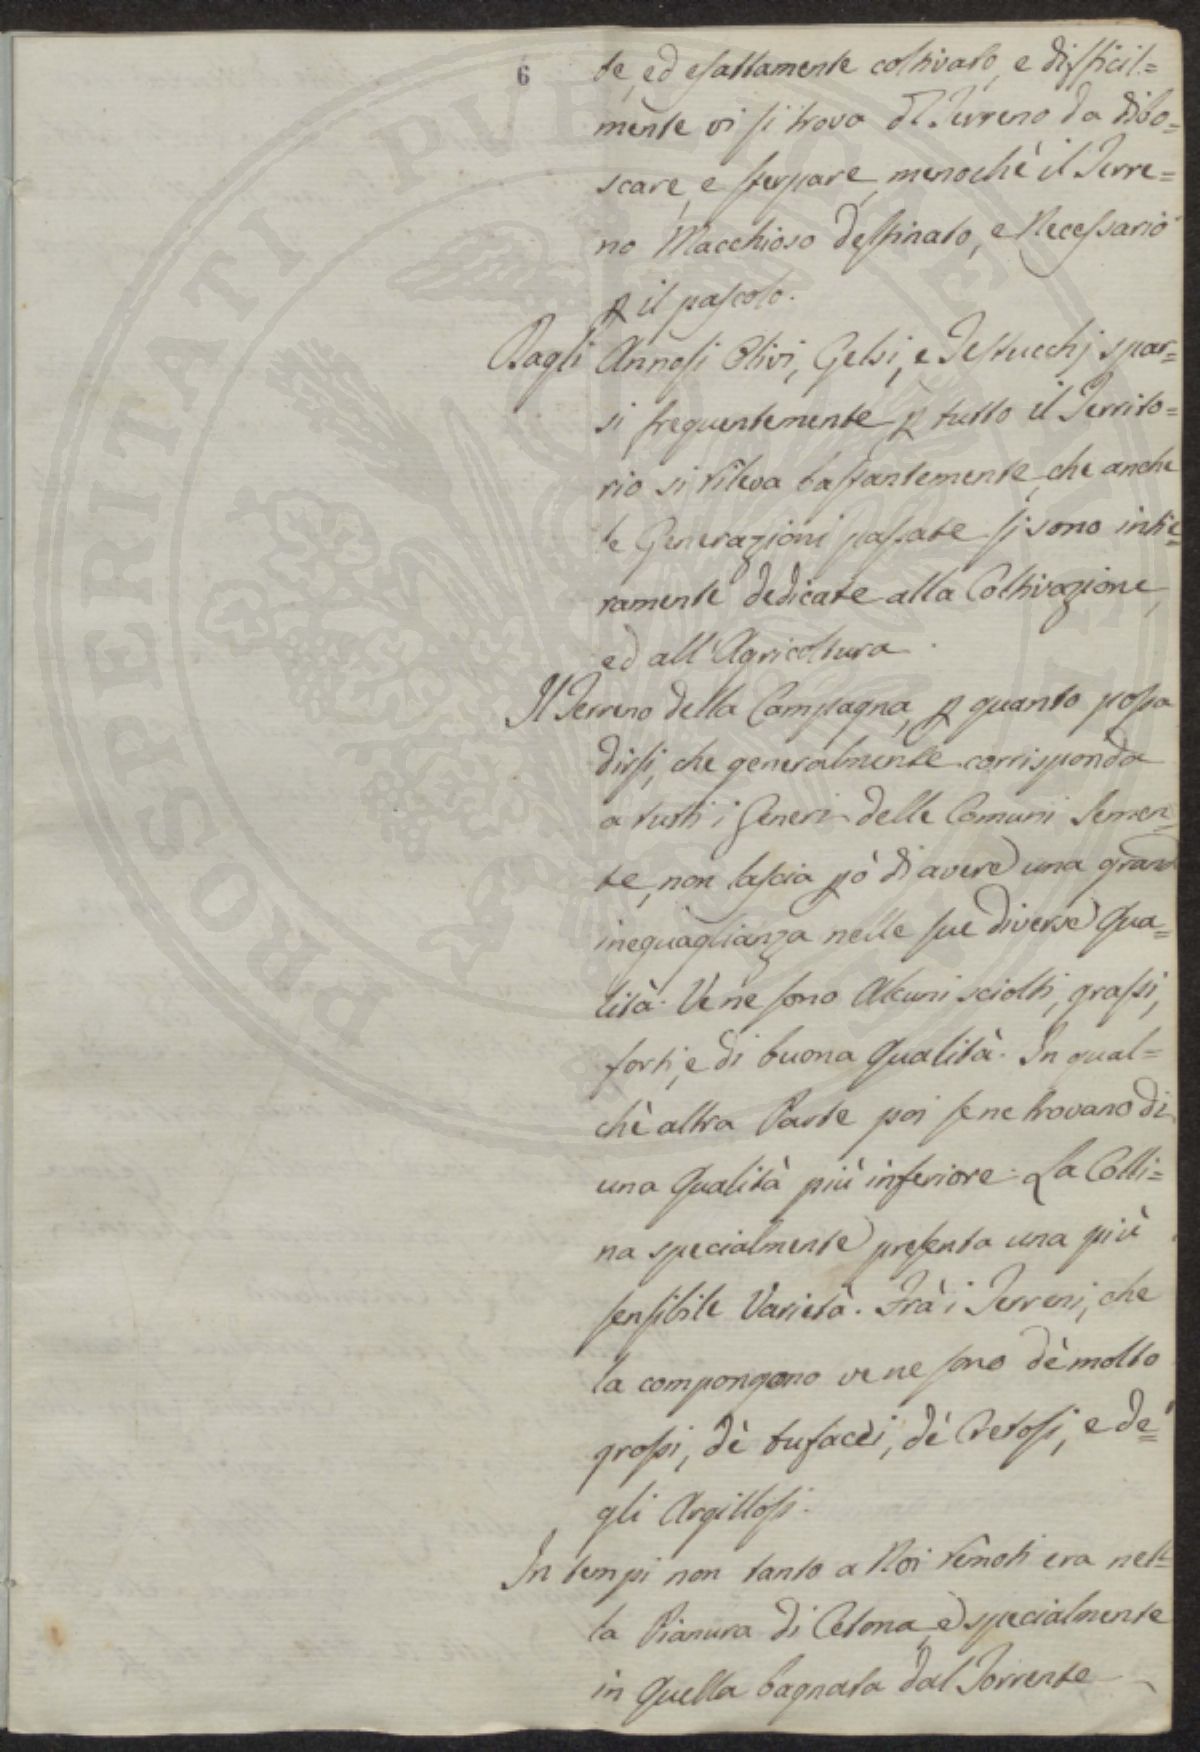 6
te, ed esattamente coltivato, e difficil=
mente vi si trova del Terreno da disbo=
scare, e sterpare, menochè il Terre=
no Macchioso destinato, e Necessario
p il pascolo.
Dagli Annosi Olivi, Gelsi, e Testucchj spar=
si frequentemente p tutto il Territo=
rio si rileva bastantemente, che anche
le Generazioni passate si sono intie=
ramente dedicate alla Coltivazione,
ed all'Agricoltura.
Il Terreno della Campagna, p quanto possa
dirsi, che generalmente corrisponda
a tutti i Generi delle Comuni Semen=
te, non lascia pò di avere una grand
ineguaglianza nelle sue diverse Qua=
lità. Ve ne sono Alcuni sciolti, grassi,
forti, e di buona Qualità. In qual=
chè altra Parte poi se ne trovano di
una Qualità più inferiore. La Colli=
na specialmente presenta una più
sensibile Varietà. Frà i Terreni, che
la compongono ve ne sono dè molto
grossi, dè tufacei, dè Cretosi, e de=
gli Argillosi.
In tempi non tanto a Noi remoti era nel=
la Pianura di Cetona, e specialmente
in Quella bagnata dal Torrente
PROSPERITATI PVBLICAE